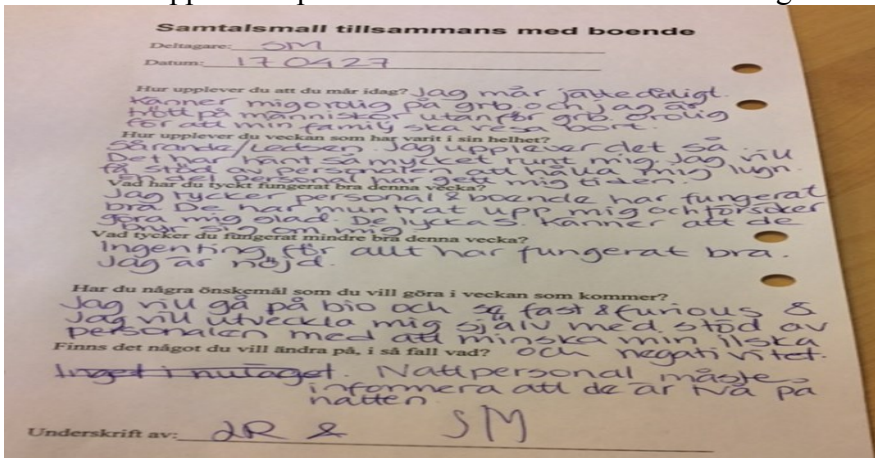 Samtalsmall tillsammans med boende
Deltagare: SM
Datum: 170427
Hur upplever du att du mår idag? Jag mår jättedåligt.
Känner mig orolig på grb. och jag är
trött på människor utanför grb. orolig
för att min family ska resa bort.
Hur upplever du veckan som har varit i sin helhet?
Sårande/Ledsen. Jag upplever det så.
Det har hänt så mycket runt mig. Jag vill
få stöd av personalen att hålla mig lugn.
En del personal har gett mig tiden.
Vad har du tyckt fungerat bra denna vecka?
Jag tycker personal & boende har fungerat
bra. De har muntrat upp mig och försöker
göra mig glad. De lyckas. Känner att de
bryr sig om mig.
Vad tycker du fungerat mindre bra denna vecka?
Ingenting för allt har fungerat bra.
Jag är nöjd.
Har du några önskemål som du vill göra i veckan som kommer?
Jag vill gå på bio och se fast & furious &
Jag vill utveckla mig själv med stöd av
personalen med att minska min ilska
och negativitet.
Finns det något du vill ändra på, i så fall vad?
Inget i nuläget. Nattpersonal måste
informera att de är två på
natten.
Underskrift av: JR & SM